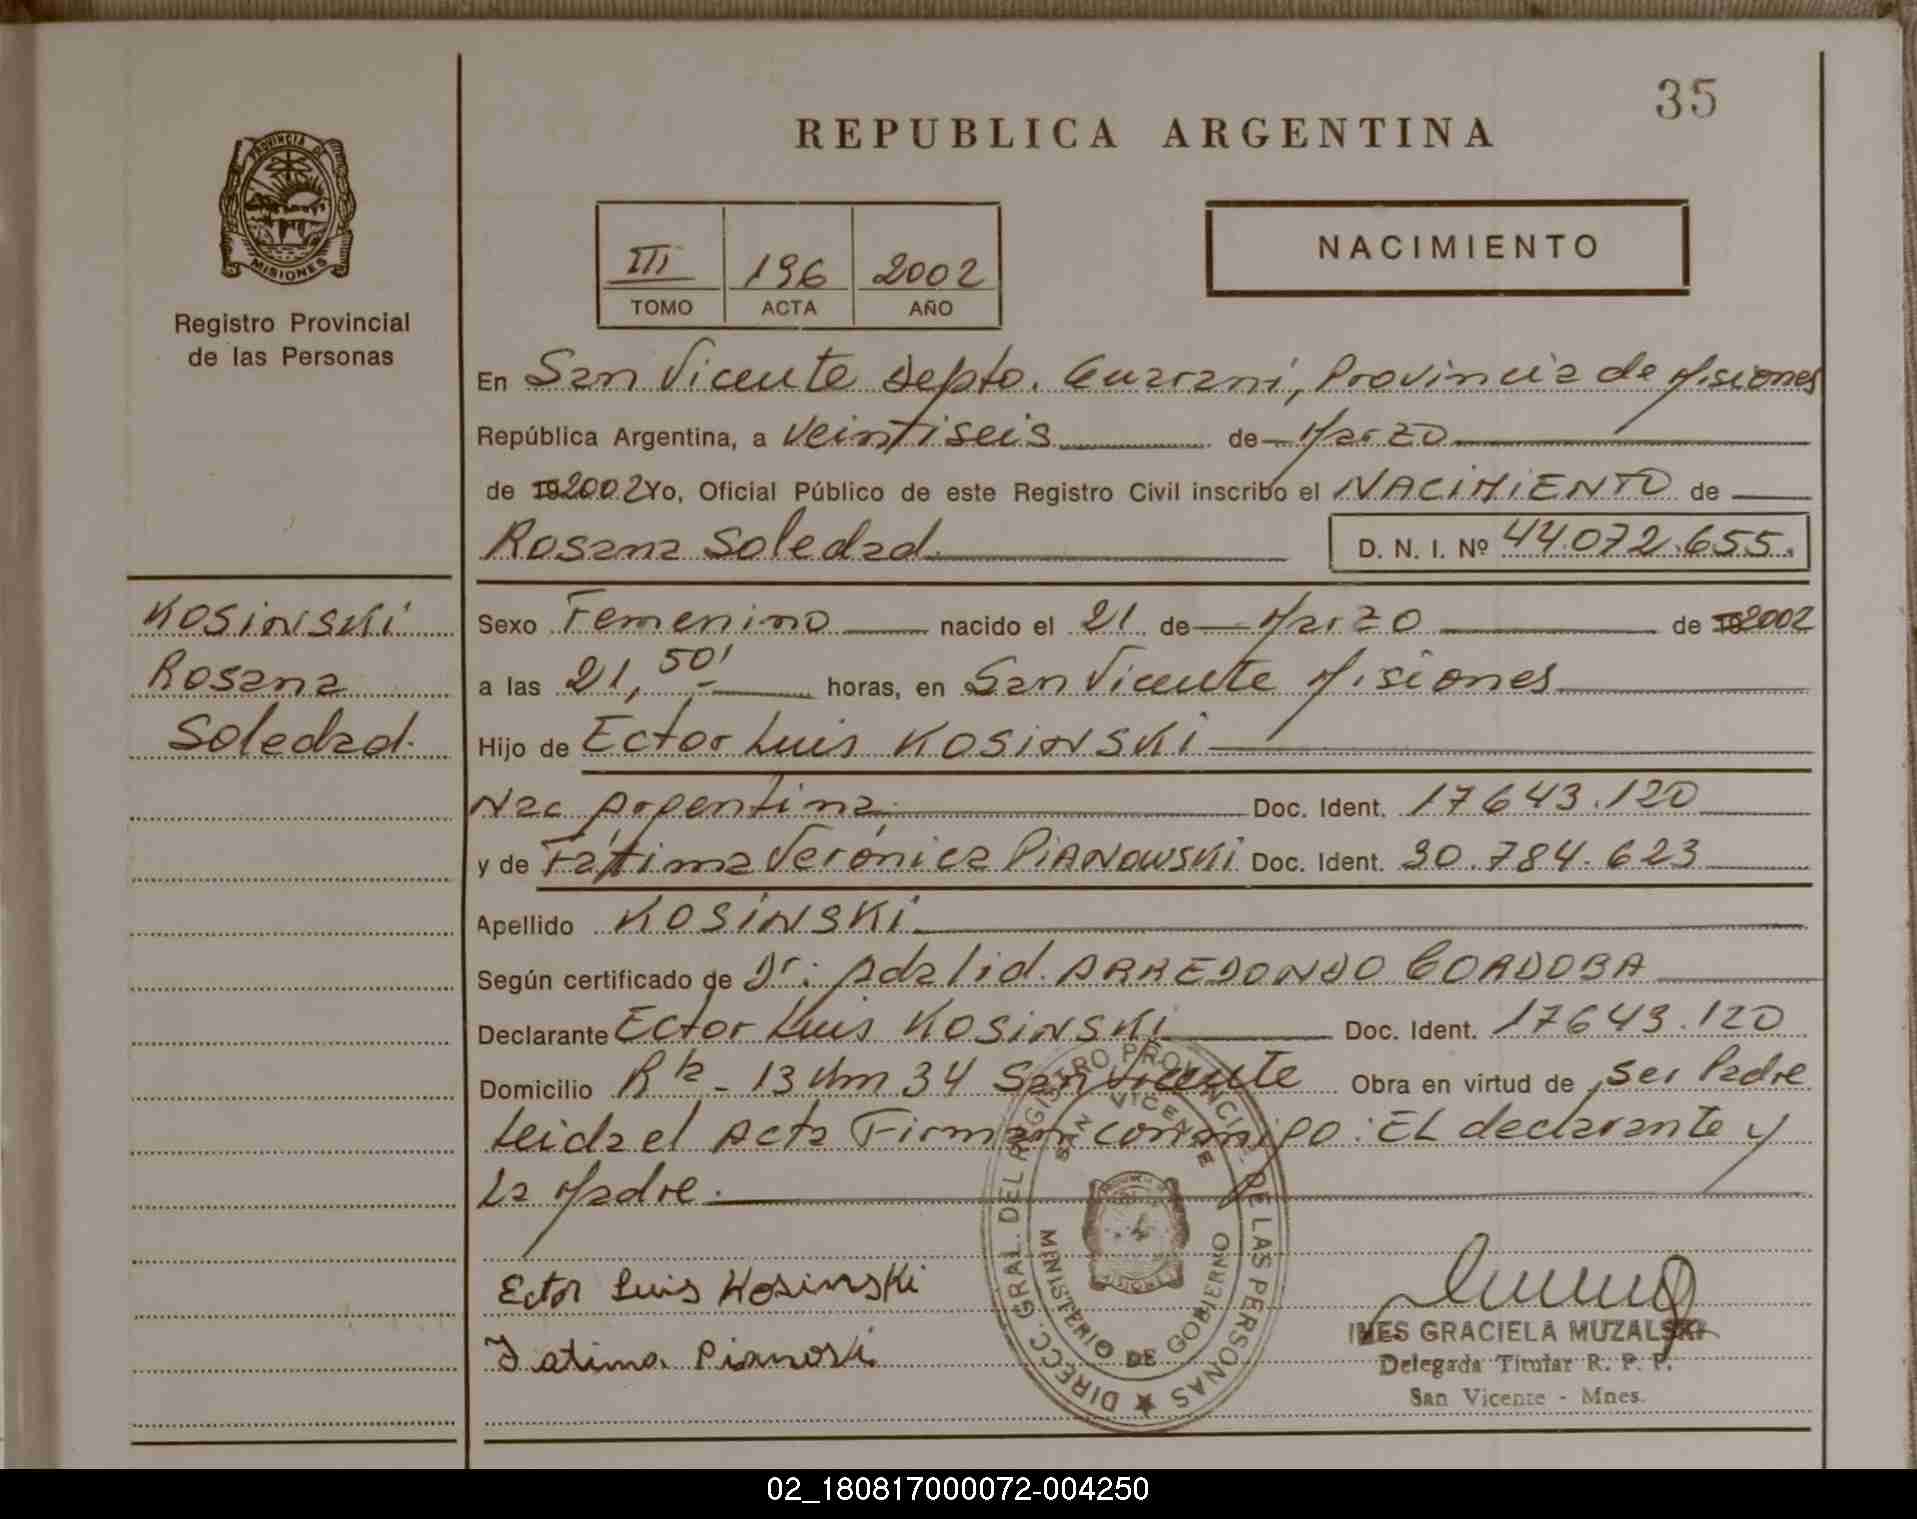 35
REPUBLICA ARGENTINA
PROVINCIA DE
MISIONES
Registro Provincial
de las Personas
III 196 2002
TOMO ACTA AÑO
NACIMIENTO
En San Vicente Depto. Guaraní, Provincia de Misiones
República Argentina, a veintiseis de Marzo
de 192002 Yo, Oficial Público de este Registro Civil inscribo el NACIMIENTO de
Rosana Soledad D. N. I. Nº 44.072.655.
KOSINSKI
Rosana
Soledad.
Sexo Femenino nacido el 21 de Marzo de 192002
a las 21,50' horas, en San Vicente Misiones
Hijo de Ector Luis KOSINSKI
Nac Argentina Doc. Ident. 17643.120
y de Fátima Verónica PIANOWSKI Doc. Ident. 30.784.623
Apellido KOSINSKI
Según certificado de Dr: Adalid ARREDONDO CORDOBA
Declarante Ector Luis KOSINSKI Doc. Ident. 17643.120
Domicilio Rta - 13 Km 34 San Vicente Obra en virtud de ser Padre
Leida el Acta Firman conmigo: EL declarante y
La Madre.
Ector Luis Kosinski
Fatima Pianoski
DIRECC. GRAL. DEL REGISTRO PROVINCIAL DE LAS PERSONAS
SAN VICENTE
MINISTERIO DE GOBIERNO
MISIONES
INES GRACIELA MUZALSKI
Delegada Titular R. P. P.
San Vicente - Mnes.
02_180817000072-004250